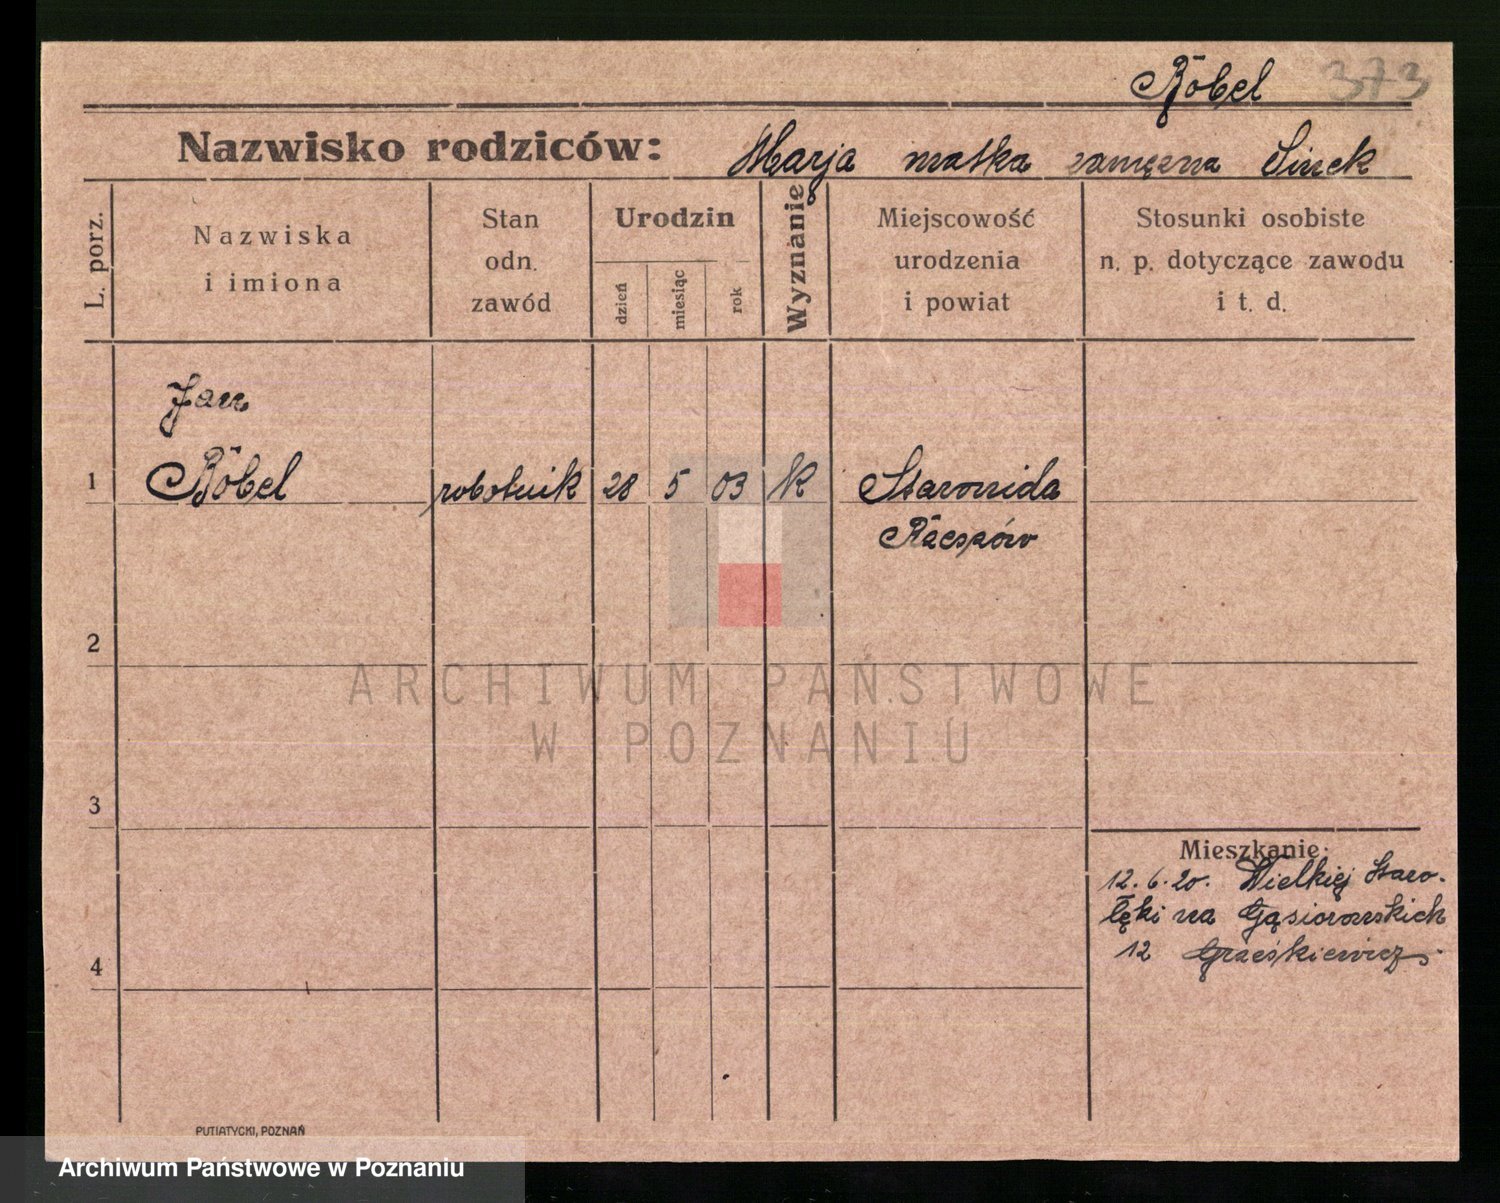 Röbel 373
Nazwisko rodziców: Marja matka zamężna Sinek
L. porz.
Nazwiska
i imiona
Stan
odn.
zawód
Urodzin
dzień
miesiąc
rok
Wyznanie
Miejscowość
urodzenia
i powiat
Stosunki osobiste
n. p. dotyczące zawodu
i t. d.
Jan
1 Röbel robotnik 28 5 03 k
2
ARCHIWUM PAŃSTWOWE
W POZNANIU
3
Mieszkanie:
12.6.20. Wielkiej Staro-
łęki na Gąsiorowskich
12
4
PUTIATYCKI, POZNAŃ
Archiwum Państwowe w Poznaniu